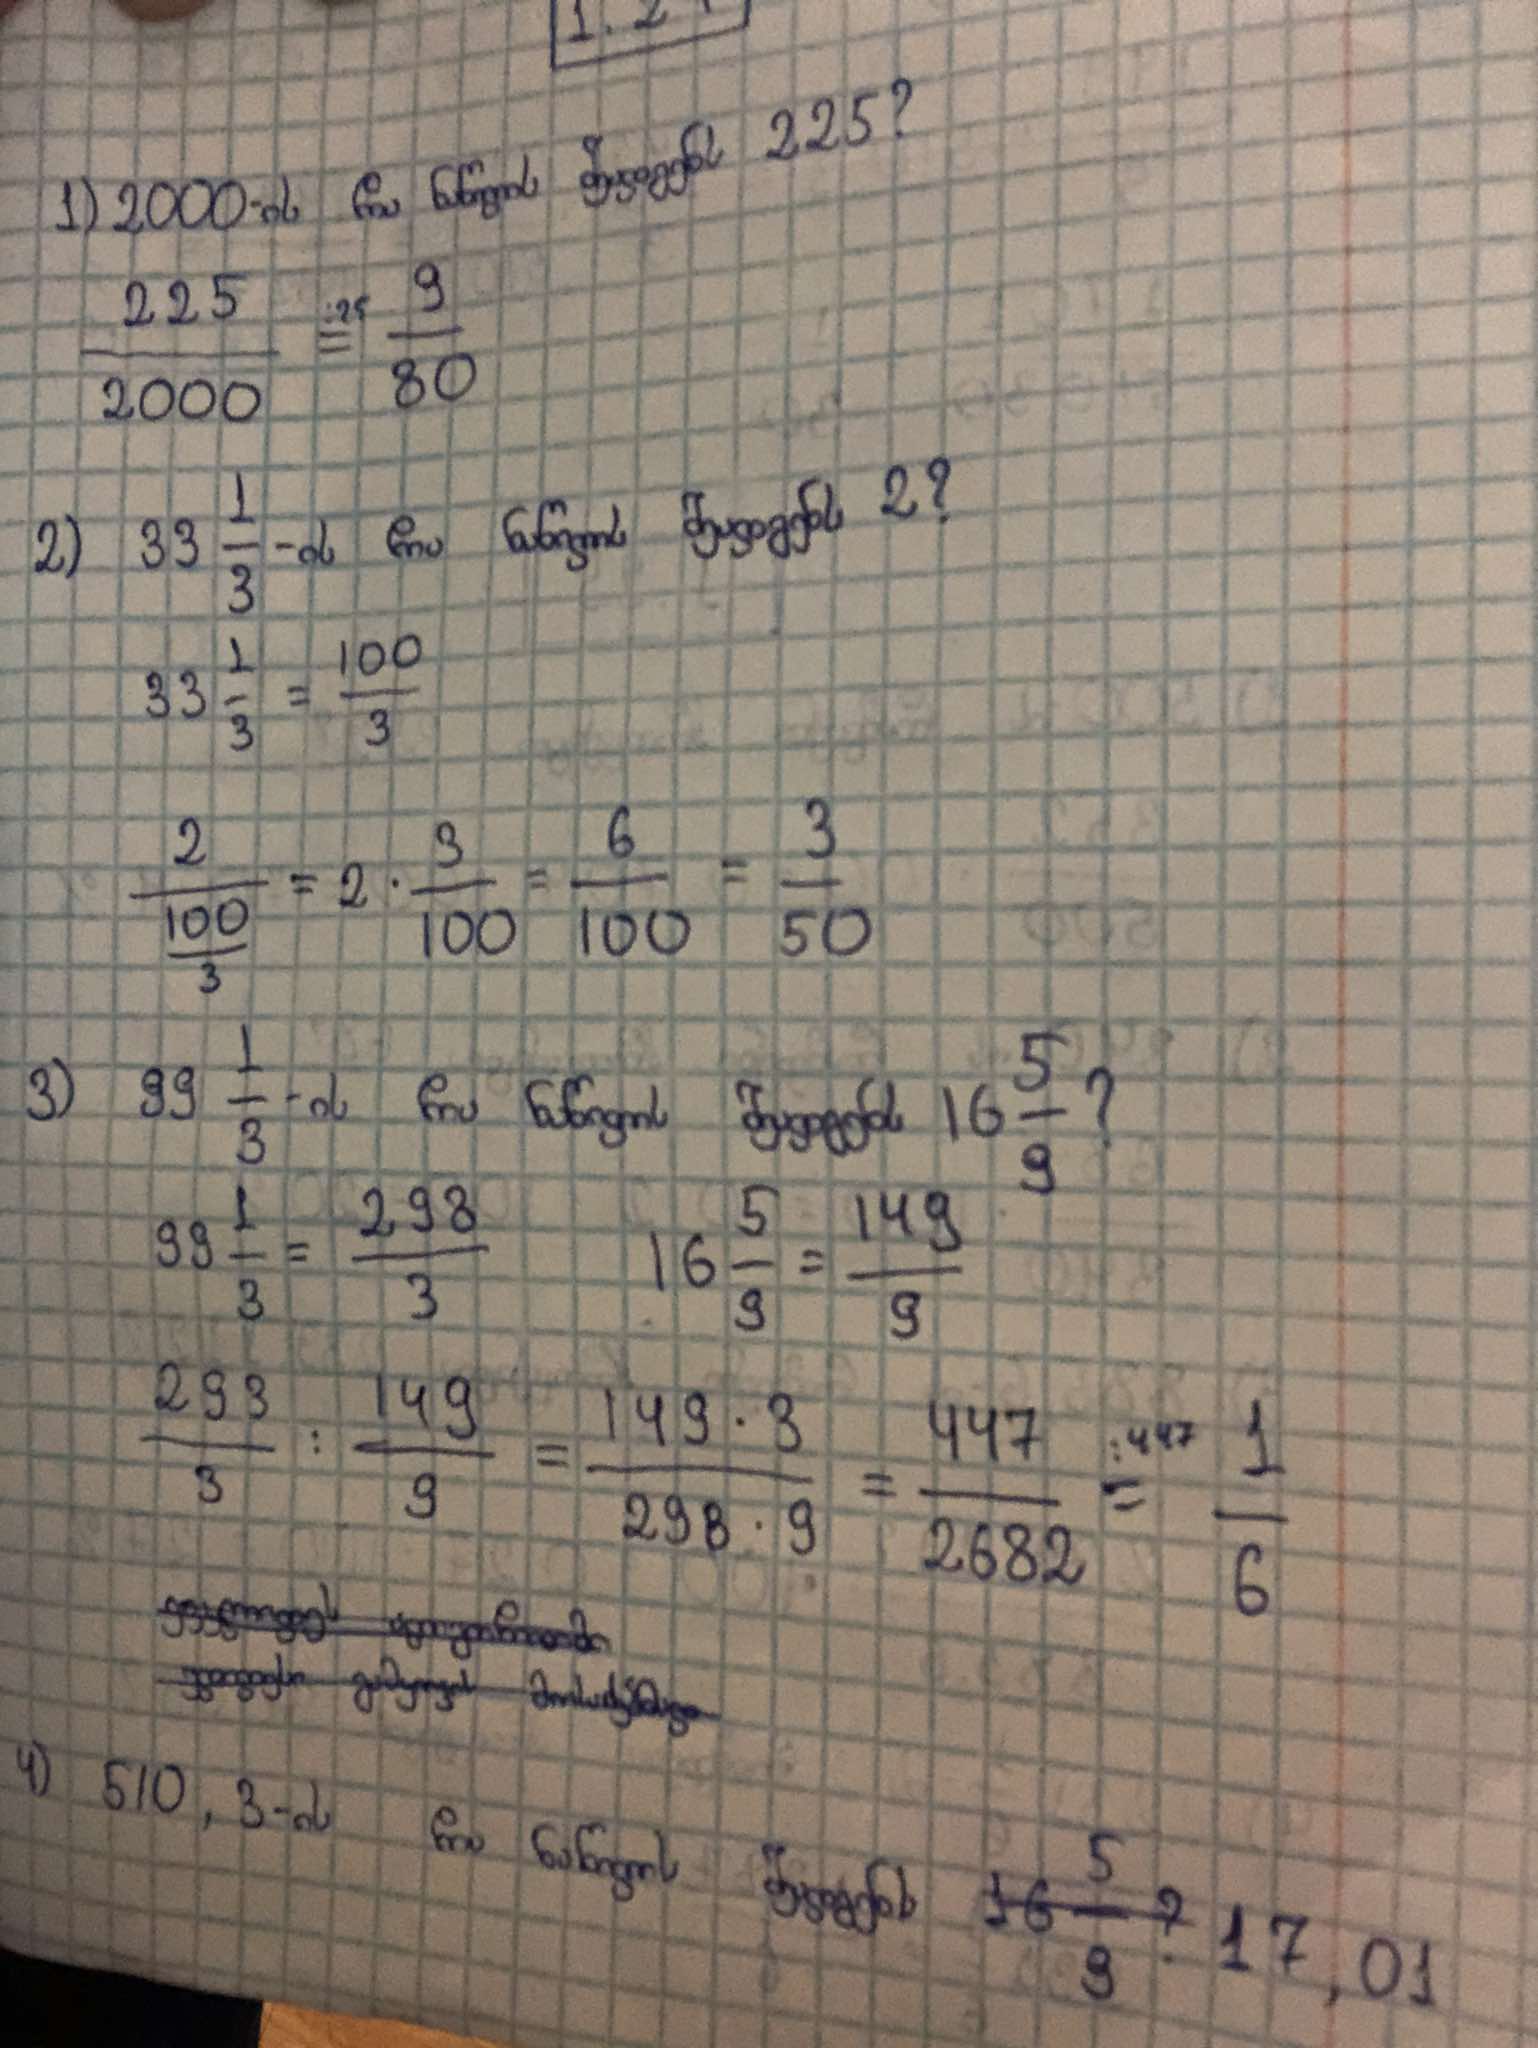 1) 2000-ის რა ნაწილს შეადგენს 225?
225/2000 =:25 9/80
2) 33 1/3-ის რა ნაწილს შეადგენს 2?
33 1/3 = 100/3
2/(100/3) = 2 · 3/100 = 6/100 = 3/50
3) 99 1/3-ის რა ნაწილს შეადგენს 16 5/9?
99 1/3 = 298/3    16 5/9 = 149/9
298/3 : 149/9 = 149 · 3/298 · 9 = 447/2682 =:447 1/6
4) 510,3-ის რა ნაწილს შეადგენს 16 5/9 ? 17,01